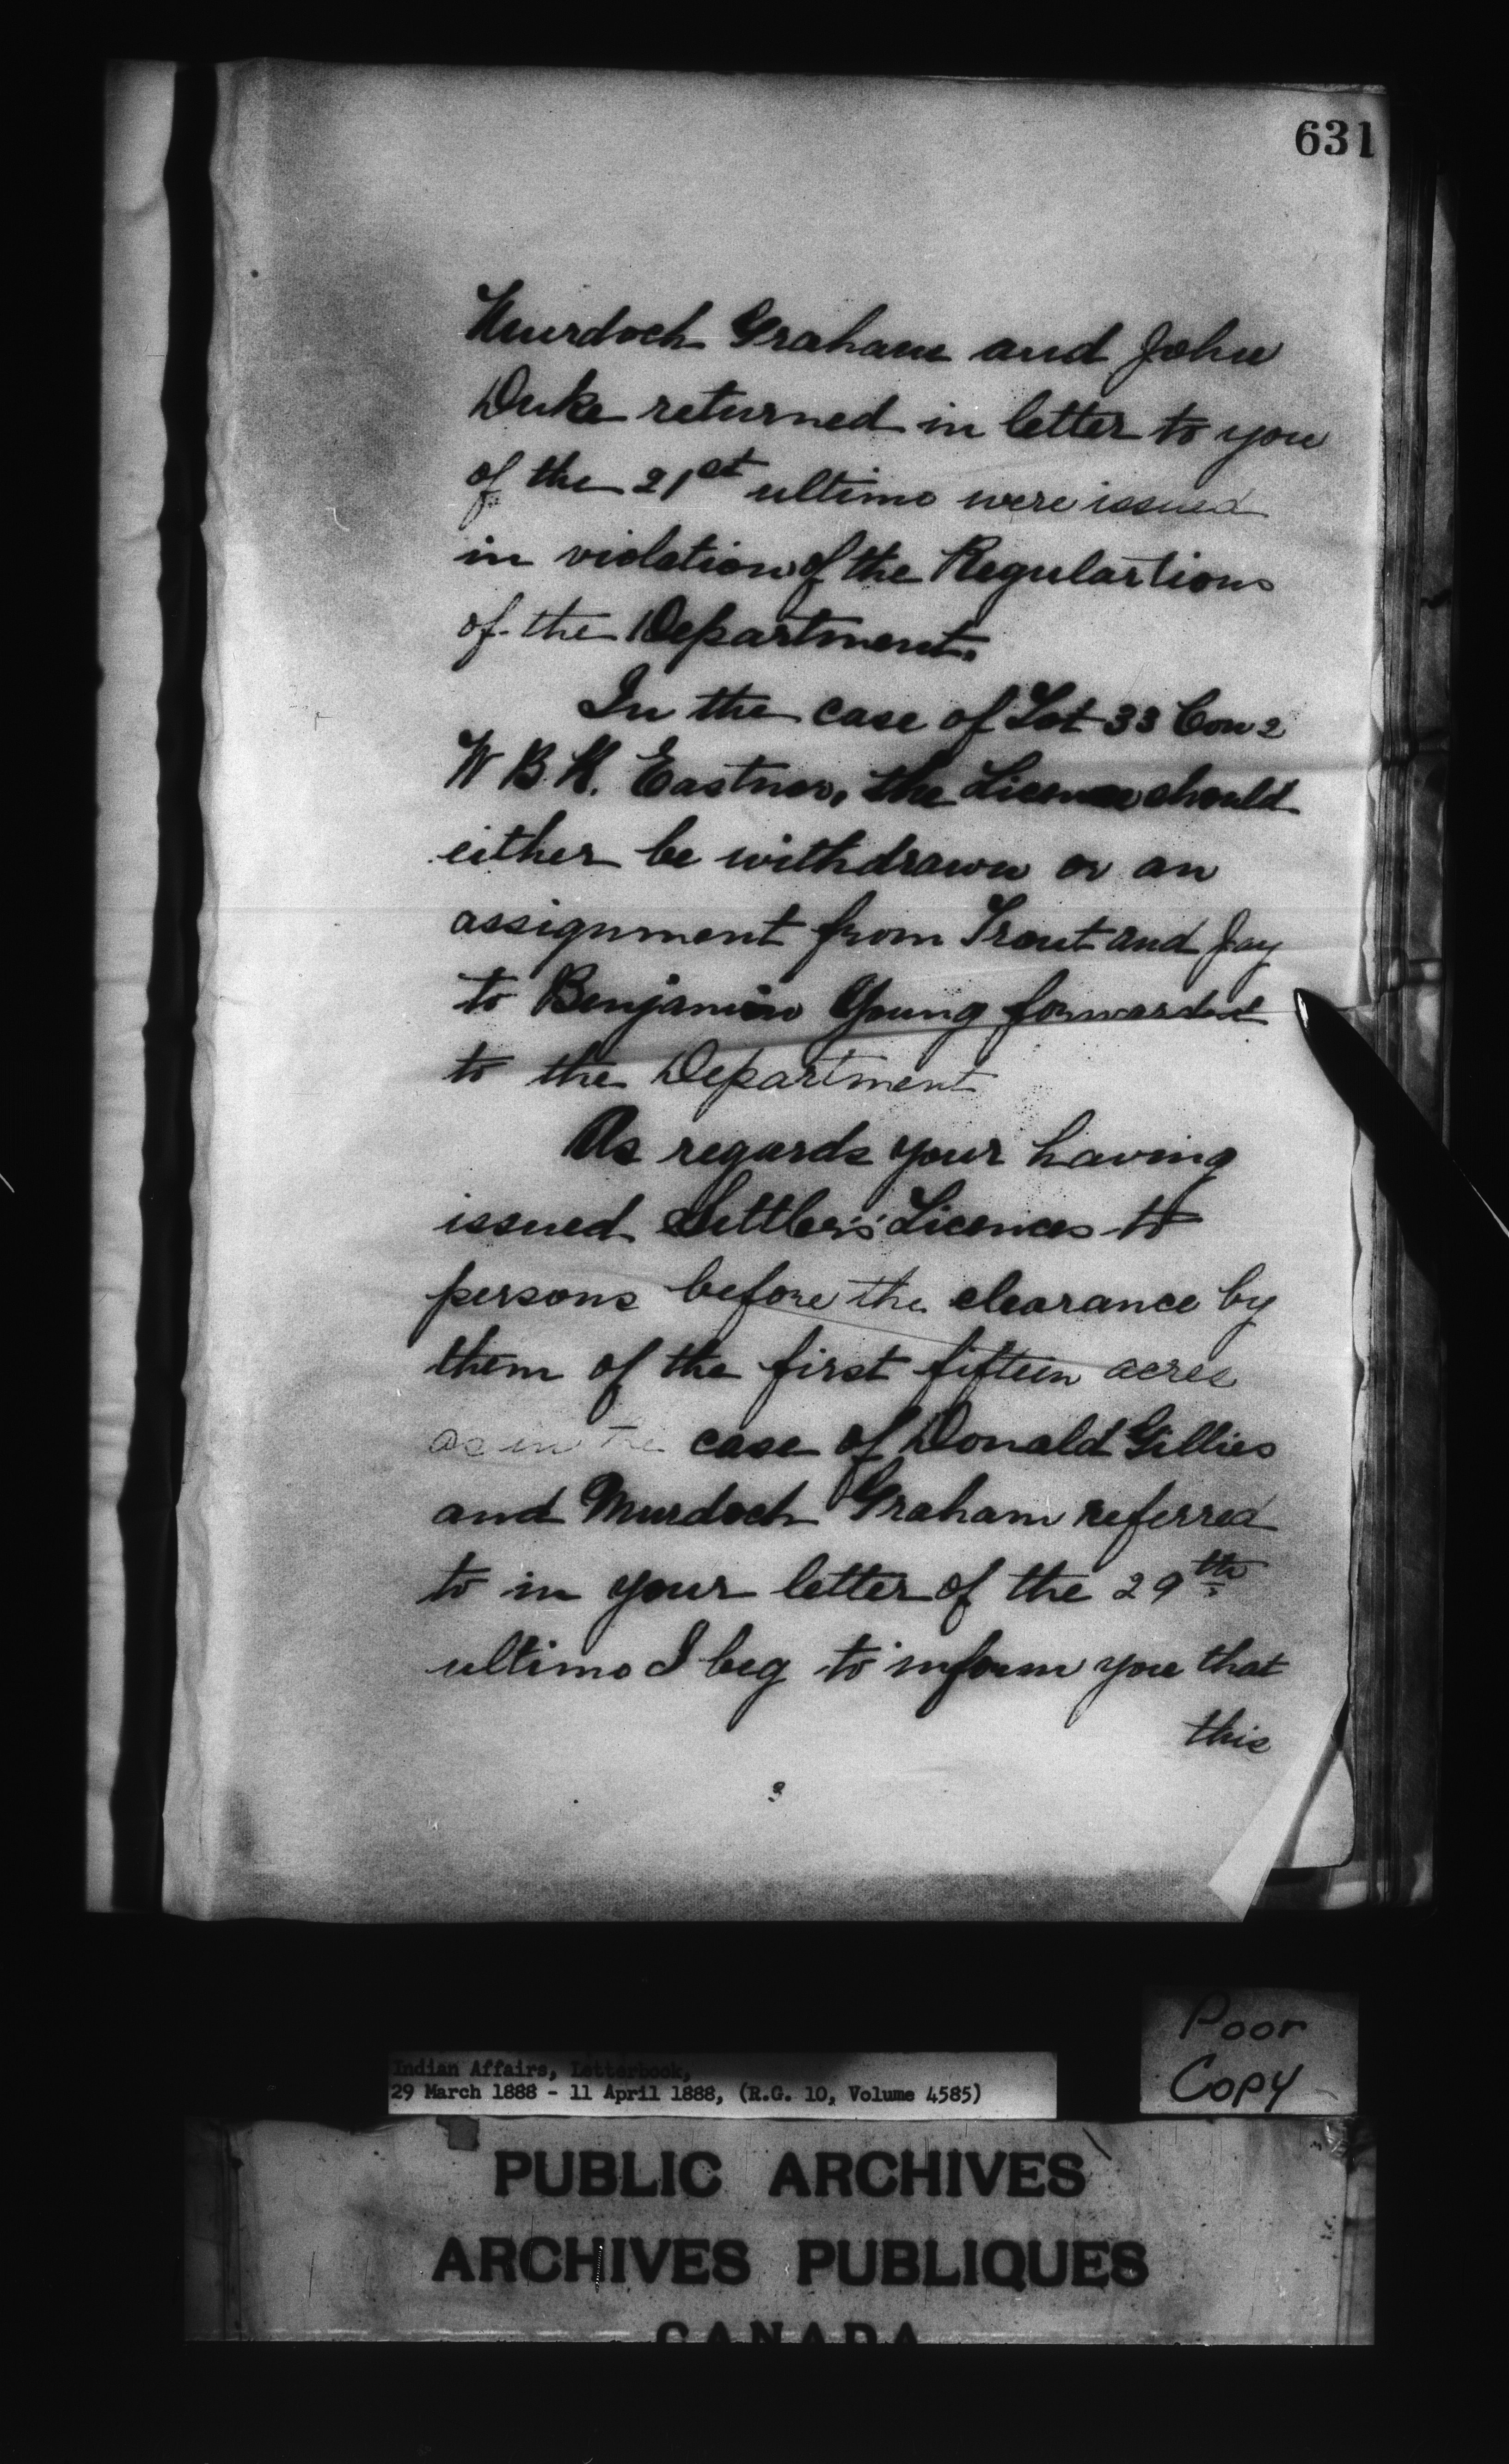 631
Murdoch Graham and John
Duke returned in letter to you
of the 21st ultimo were issued
in violation of the Regulartions
of the Department.
In the case of Lot 33 Con 2
W B.R. Eastnor, the License should
either be withdrawn or an
assignment from Trout and Jay
to Benjamin Young forwarded
to the Department
As regards your having
issued Settler's Licences to
persons before the clearance by
them of the first fifteen acres
as in the case of Donald Gillies
and Murdoch Graham referred
to in your letter of the 29th
ultimo I beg to inform you that
this
3
Poor
Copy
Indian Affairs, Letterbook,
29 March 1888 - 11 April 1888, (R.G. 10, Volume 4585)
PUBLIC ARCHIVES
ARCHIVES PUBLIQUES
CANADA